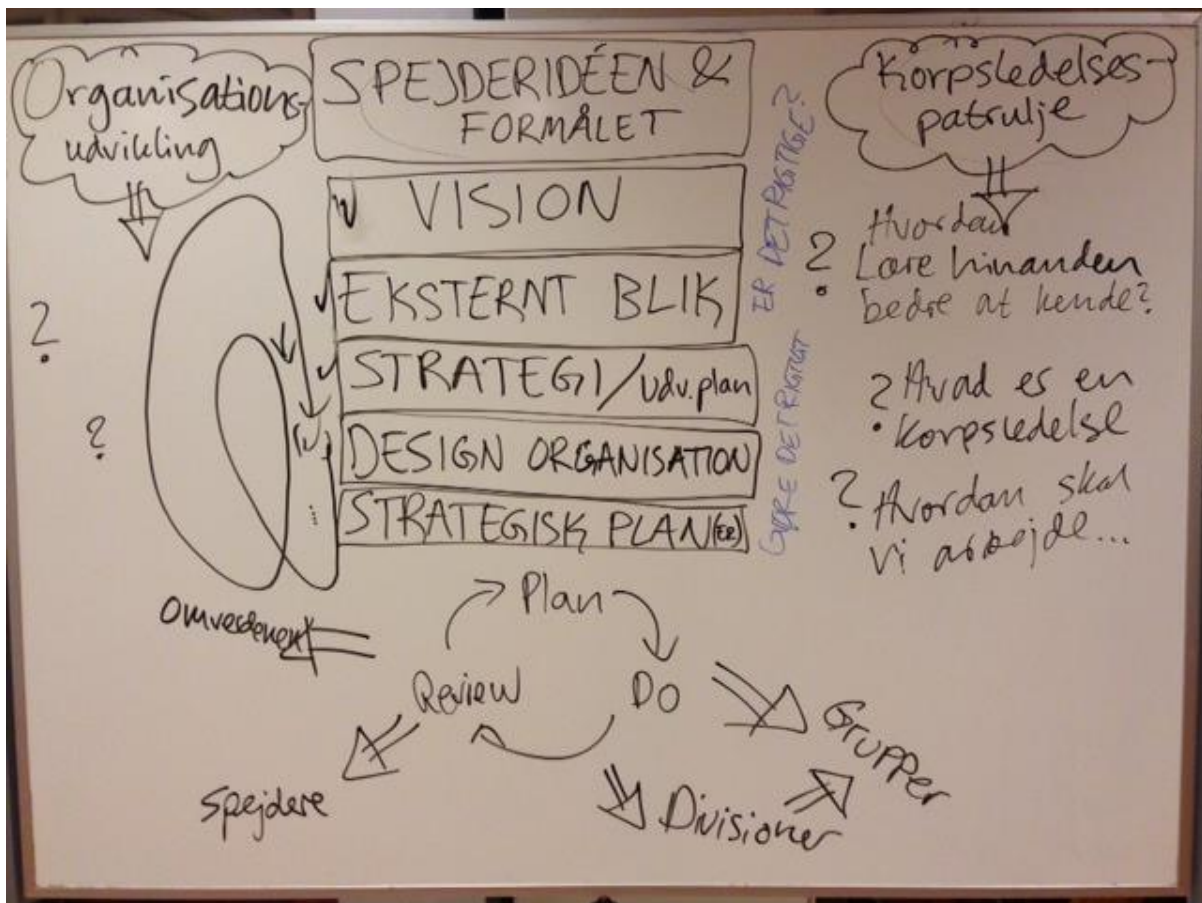 Organisations-
udvikling
?
?
SPEJDERIDÉEN &
FORMÅLET
VISION
EKSTERNT BLIK
STRATEGI/udv.plan
DESIGN ORGANISATION
STRATEGISK PLAN(ER)
GØRE DET RIGTIGT
ER DET RIGTIGE?
Korpsledelses-
patrulje
? Hvordan
Lære hinanden
bedre at kende?
? Hvad er en
korpsledelse
? Hvordan skal
vi arbejde...
Omverdenen
Plan
Review
Do
Spejdere
Divisioner
Grupper